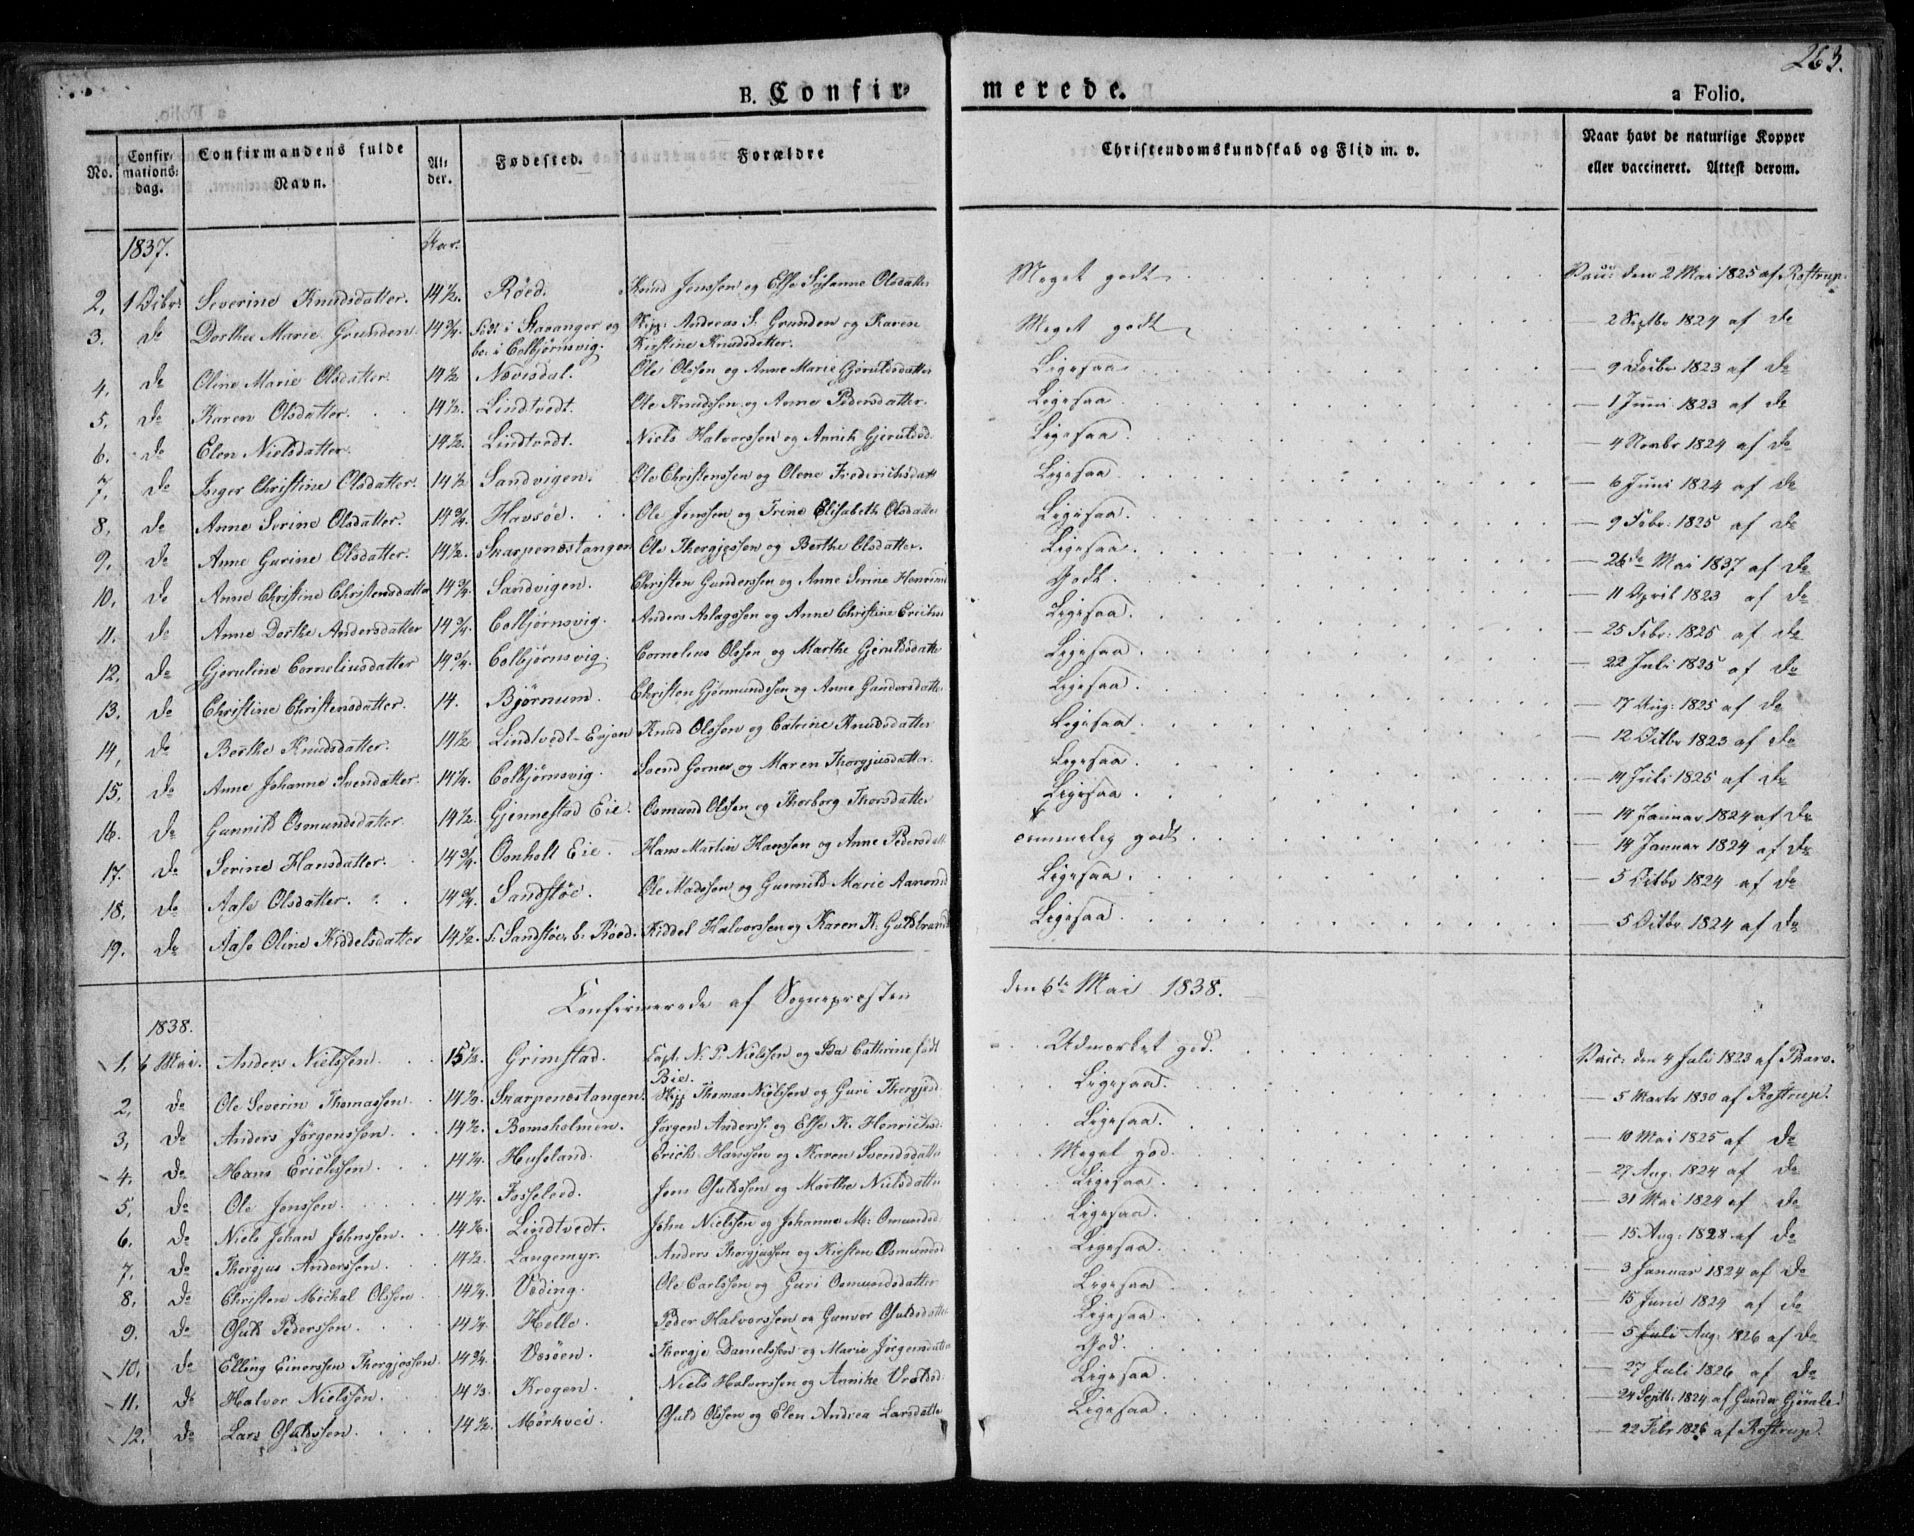 263.
B. Confirmerede.
a Folio.
No. Confirmations-dag. Confirmandens fulde Navn. Alder. Fødested. Forældre Christendomskundskab og Flid m. v. Naar havt de naturlige Kopper eller vaccineret. Attest derom.
1837. Aar.
2, 1 Octbr: Severine Knudsdatter. 14½. Røed. Knud Jenssen og Else Susanne Olsdatter Meget godt Vacc: den 2 Mai 1825 af Rostrup.
3. do Dorthea Marie Grunden 14¾. født i Stavanger og Skip: Andreas S. Grunden og Karen Meget godt — 2 Septbr 1824 af do
bor i Colbjørnsvig. Kirstine Knudsdatter.
4. do Oline Marie Olsdatter. 14½ Nævisdal. Ole Olssen og Anne Marie Gjeruldsdatter Ligesaa — 9 Octbr 1823 af do
5. do Karen Olsdatter. 14½. Lindtvedt. Ole Knudssen og Anne Pedersdatter. Ligesaa. — 1 Juni 1823 af do
6. do Elen Nielsdatter. 14½. Lindtvedt. Niels Halvorssen og Annih Gjeruldsd. Ligesaa. — 4 Novbr 1824 af do
7, do Inger Christine Olsdatter. 14½ Sandvigen. Ole Christenssen og Olene Frederichsdatt Ligesaa — 6 Juni 1824 af do
8. do Anne Serine Olsdatter. 14¾. Havsøe. Ole Jenssen og Trine Elisabeth Olsdatter Ligesaa. — 9 Febr: 1825 af do
9, do Anne Gurine Olsdatter. 14½. Skarpenæstangen Ole Thergjessen og Berthe Olsdatter. Ligesaa. — 26de Mai 1837 af do
10. do Anne Christine Christensdatter 14¾. Sandvigen. Christen Gunderssen og Anne Serine Godt. — 11 April 1823 af do
11. do Anne Dorthe Andersdatter 14¾. Colbjørnsvig. Anders Aslagssen og Anne Christine Erichsd Ligesaa. — 25 Febr: 1825 af do
12, do Gjeruline Corneliusdatter 14¾. Colbjørnsvig. Cornelius Olssen og Marthe Gjeruldsdatte Ligesaa. — 22 Juli 1825 af do
13. do Christine Christensdatter. 14. Bjørnum. Christen Gjermundssen og Anne Gundersdatter Ligesaa. — 17 Aug: 1825 af do
14, do Berthe Knudsdatter. 14½ Lindtvedt- Knud Olssen og Catrine Knudsdatter Ligesaa. — 12 Octbr 1823 af do
15. do Anne Johanne Svendsdatter. 14¼. Colbjørnsvig. Svend Gerner og Maren Thorgjusdatter. Ligesaa. — 14 Juli 1825 af do
16. do Gunnild Osmundsdatter. 14½. Gjennestad Eie. Osmund Olssen og Thorborg Thorsdatter Ligesaa. — 14 Januar 1824 af do
17. do Serine Hansdatter. 14¾. Osnholt Eie. Hans Martin Hanssen og Anne Pedersdatt temmelig godt — 14 Januar 1824 af do
18. do Aase Olsdatter. 14¾. Sandstøe. Ole Madssen og Gunnild Marie Aanond Ligesaa. — 5 Octbr 1824 af do
19. do Aase Oline Kiddelsdatter 14½. f. Sandstøe, b. Røed. Kiddel Halvorssen og Karen K. Guldbrand Ligesaa. — 5 Octbr 1824 af do
Confirmerede af Sognepresten den 6te Mai 1838.
1838.
1. 6 Mai. Anders Nielssen. 15½. Grimstad. Capt. N. P. Nielssen og Ida Cathrine født Udmærket god. Vacc: den 4 Juli 1823 af Tharo.
Bie.
2, do Ole Severin Thomassen 14½. Skarpenæstangen. Skip Thomas Nielssen og Guri Thergjesd. Ligesaa. — 5 Marts 1830 af Rostrup.
3, do Anders Jørgenssen. 14½. Bomsholmen. Jørgen Anderss. og Else K. Henrichsd. Ligesaa. — 10 Mai 1825 af do
4. do Hans Erichssen. 14¼. Huseland. Erich Hanssen og Karen Svendsdatter Meget god. — 27 Aug. 1824 af do
5, do Ole Jenssen. 14¼. Fosselved. Jens Osuldssen og Marthe Nielsdatter Ligesaa. — 31 Mai 1824 af do
6. do Niels Johan Johnssen. Lindtvedt. John Nielssen og Johanne M. Osmundsd. Ligesaa. — 15 Aug: 1828 af do
7, do Thergjus Anderssen. 14½. Langemyr. Anders Thorgjussen og Kirsten Osmundsd Ligesaa. — 3 Januar 1824 af do
8, do Christen Michal Olssen 14¼. Veding. Ole Carlssen og Guri Osmundsdatter Ligesaa. — 15 Junii 1824 af do
9. do Osuld Pederssen. 14¼. Helle. Peder Halvorssen og Gunvor Osuldsdatter Ligesaa. — 5 Juli Aug: 1826 af do
10, do Elling Einerssen Thorgjessen. 14¾. Vessøen. Thorgje Danielssen og Marie Jørgensdatter God. — 27 Juli 1826 af do
11. do Halvor Nielssen. 14⅓. Krogen. Niels Halvorssen og Annike Ligesaa. — 24 Septb: 1824 af Gunder Gjømle.
12. do Lars Osuldssen. 14½. Mørkvei. Osuld Olssen og Elen Andrea Larsdatte Ligesaa. — 22 Febr 1826 af Rostrup.